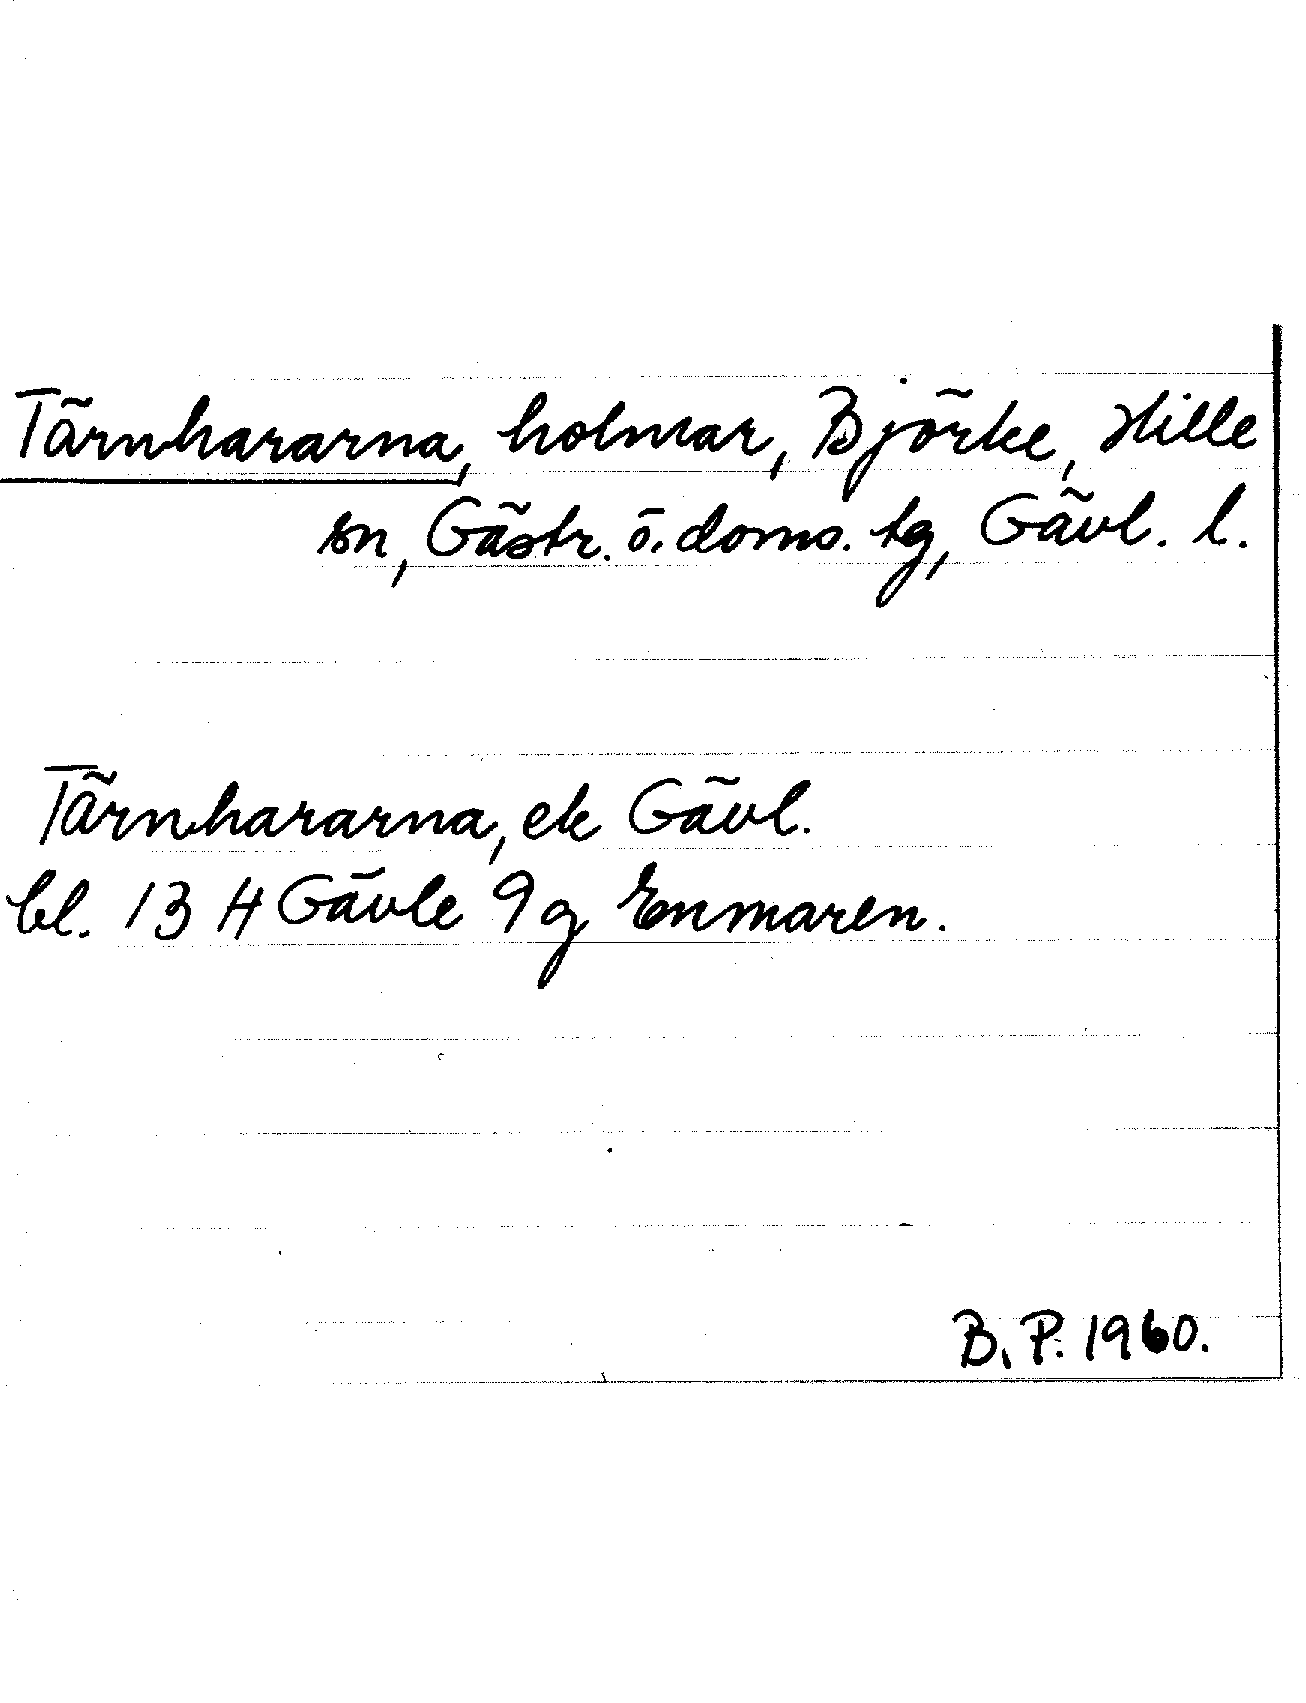 Tärnhararna, holmar, Björke, Hille
sn, Gästr. ö. doms. tg, Gävl. l.
Tärnhararna, ek Gävl.
bl. 13 H Gävle 9g Enmaren.
B. P. 1960.